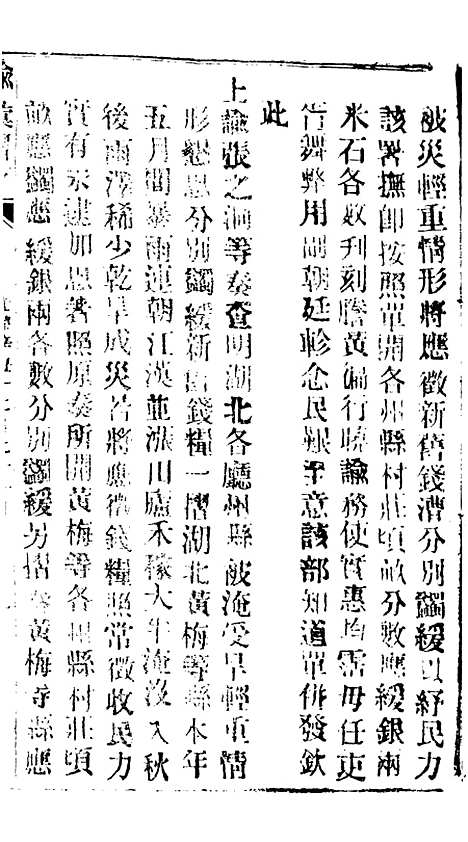 被災輕重情形將應徵新舊錢漕分別蠲緩以紓民力
該署撫卽按照單開各州縣村莊頃畝分數應緩銀兩
米石各數刋刻謄黃徧行曉諭務使實惠均霑毋任吏
胥舞弊用副朝廷軫念民艱至意該部知道單併發欽
此
上諭張之洞等奏查明湖北各廳州縣被淹受旱輕重情
形懇恩分別蠲緩新舊錢糧一摺湖北黃梅等縣本年
五月間暴雨連朝江漢並漲田廬禾稼大半淹沒入秋
後雨澤稀少乾旱成災若將應徵錢糧照常徵收民力
實有未逮加恩著照原奏所開黃梅等各州縣村莊頃
畝應蠲應緩銀兩各數分別蠲緩另摺奏黃梅等縣應
諭